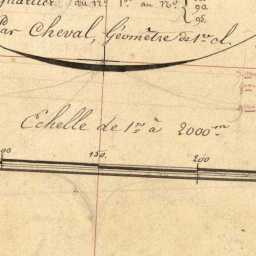 quartier du n.° 1.er au n.° 90
95.
Par Cheval, Géomètre de 1.re cl.
Echelle de 1.m à 2000.m
00 150 200